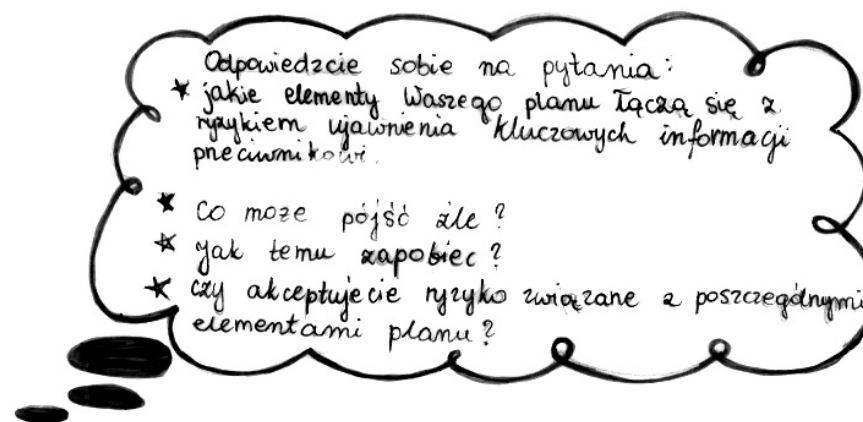 Odpowiedzcie sobie na pytania:
★ jakie elementy Waszego planu łączą się z
ryzykiem ujawnienia kluczowych informacji
przeciwnikowi.
★ Co może pójść źle?
★ Jak temu zapobiec?
★ czy akceptujecie ryzyko związane z poszczególnymi
elementami planu?